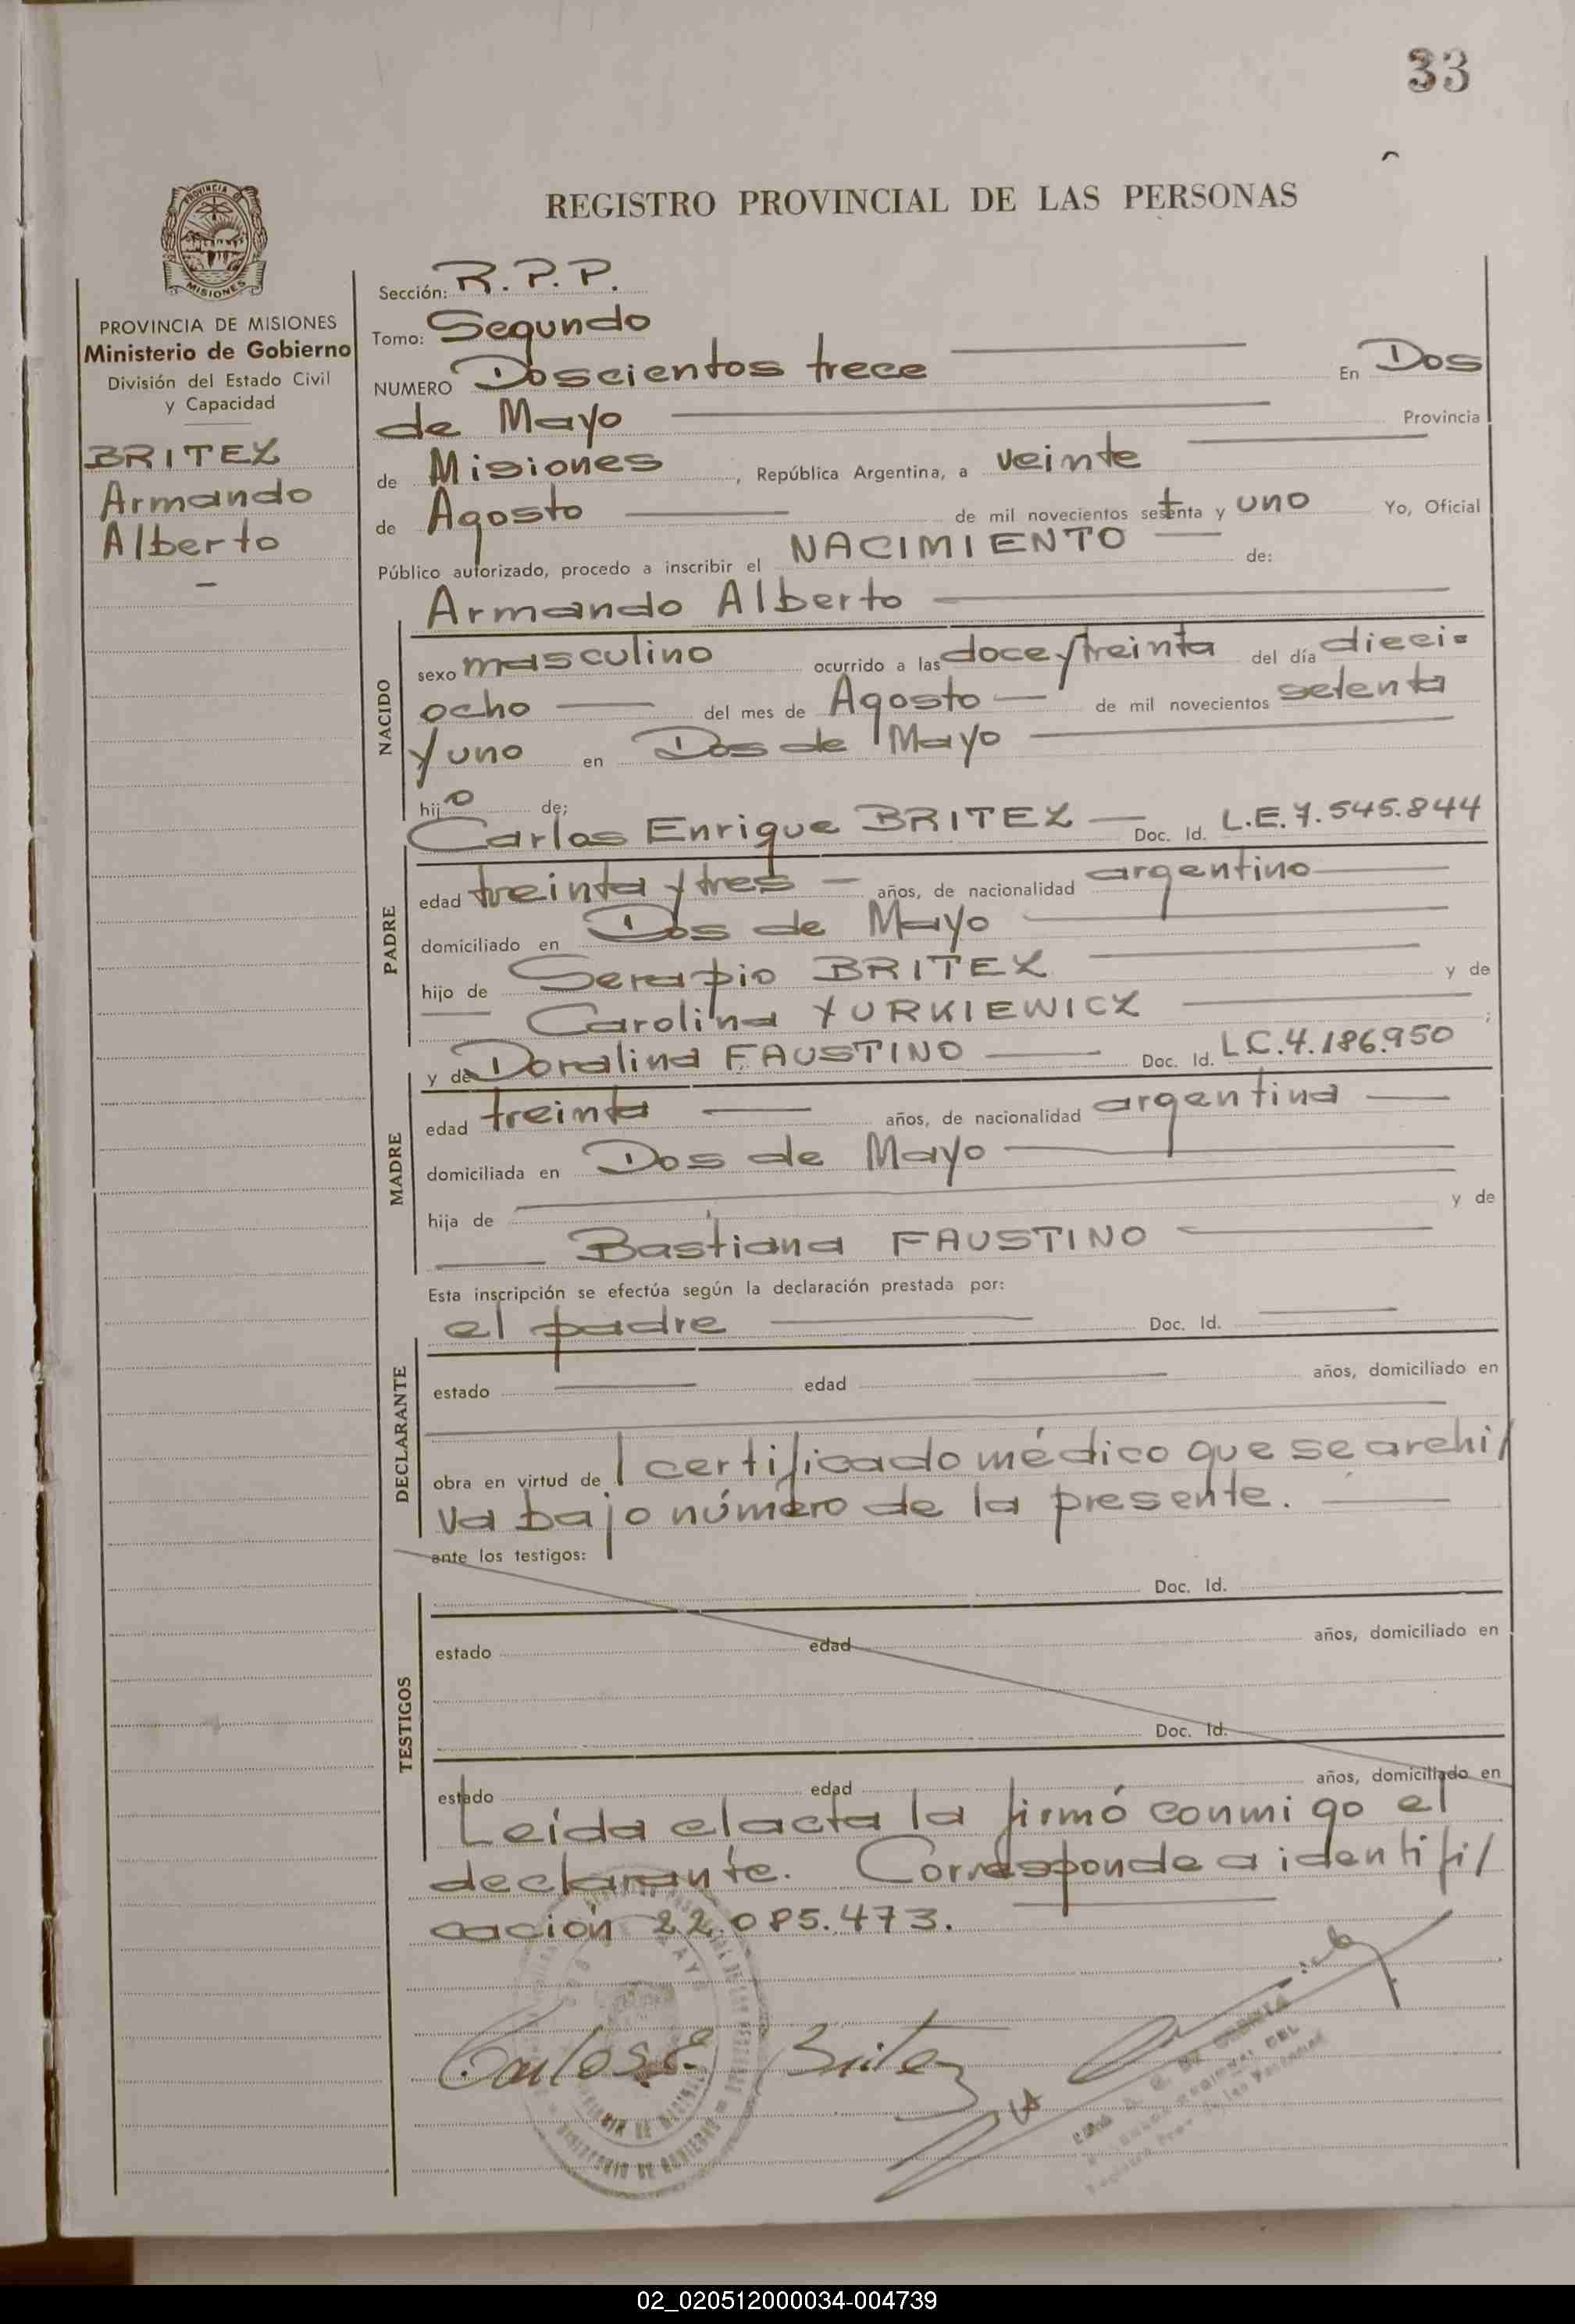 33
PROVINCIA DE
MISIONES
REGISTRO PROVINCIAL DE LAS PERSONAS
PROVINCIA DE MISIONES
Ministerio de Gobierno
División del Estado Civil
y Capacidad
BRITEZ
Armando
Alberto
Sección: R.P.P.
Tomo: Segundo
NUMERO Doscientos trece En Dos
de Mayo Provincia
de Misiones, República Argentina, a veinte
de Agosto de mil novecientos setenta y uno Yo, Oficial
Público autorizado, procedo a inscribir el NACIMIENTO de:
Armando Alberto
NACIDO
sexo masculino ocurrido a las doce y treinta del día dieci=
ocho del mes de Agosto de mil novecientos setenta
y uno en Dos de Mayo
hijo de;
Carlos Enrique BRITEZ Doc. Id. L.E. 7.545.844
PADRE
edad treinta y tres años, de nacionalidad argentino
domiciliado en Dos de Mayo
hijo de Serapio BRITEZ y de
Carolina YURKIEWICZ ;
y de Doralina FAUSTINO Doc. Id. L.C. 4.186.950
MADRE
edad treinta años, de nacionalidad argentina
domiciliada en Dos de Mayo
hija de y de
Bastiana FAUSTINO
Esta inscripción se efectúa según la declaración prestada por:
el padre Doc. Id.
DECLARANTE
estado edad años, domiciliado en
obra en virtud de l certificado médico que se archi/
va bajo número de la presente.
ante los testigos:
Doc. Id.
TESTIGOS
estado edad años, domiciliado en
Doc. Id.
estado edad años, domiciliado en
Leída el acta la firmó conmigo el
declarante. Corresponde a identifi/
cación 22.085.473.
Carlos E. Britez
02_020512000034-004739